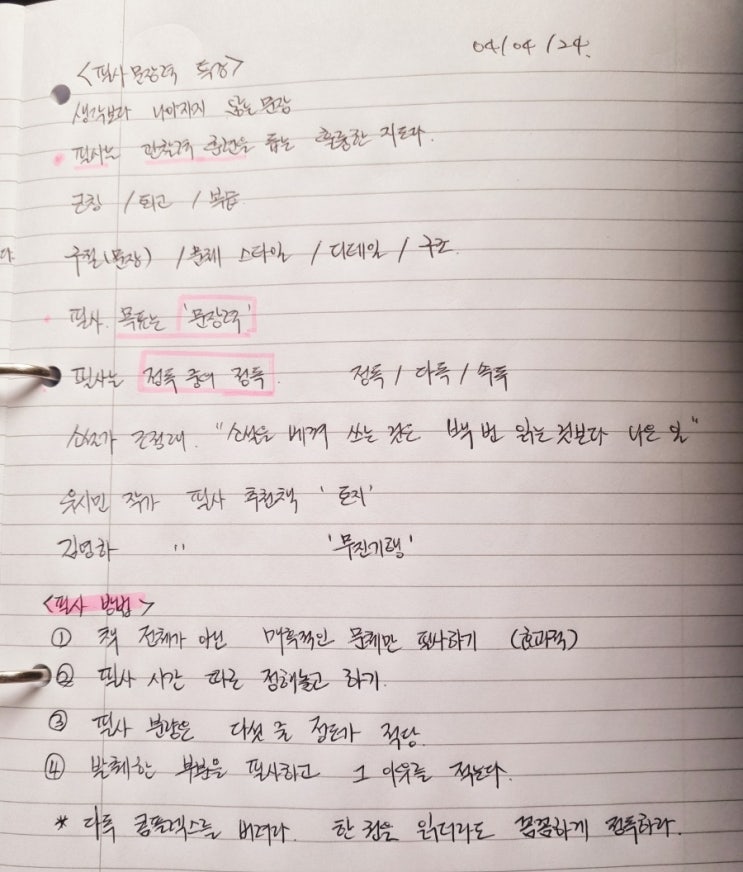 04/04/24.
<필사 문장력 특강>
생각보다 나아지지 않는 문장
필사는 관찰력 훈련을 돕는 훌륭한 지도다.
/ 퇴고 /
구절(문장) / 문체 스타일 / 디테일 / 구조.
필사 목표는 '문장력'
필사는 정독 중의 정독. 정독 / 다독 / 속독
소설가 조정래. "소설을 베껴 쓰는 것은 백 번 읽는 것보다 나은 일"
유시민 작가 필사 추천책 '토지'
김영하 " '무진기행'
<필사 방법>
① 책 전체가 아닌 매혹적인 문체만 필사하기 (효과적)
② 필사 시간 따로 정해놓고 하기.
③ 필사 분량은 다섯 줄 정도가 적당.
④ 발췌한 부분을 필사하고 그 이유를 적는다.
* 다독 콤플렉스를 버려라. 한 권을 읽더라도 꼼꼼하게 정독하라.